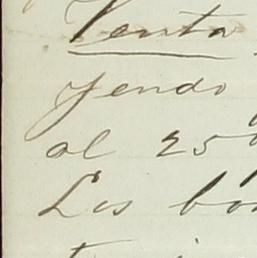 Venta
yendo
al 25
Los bo